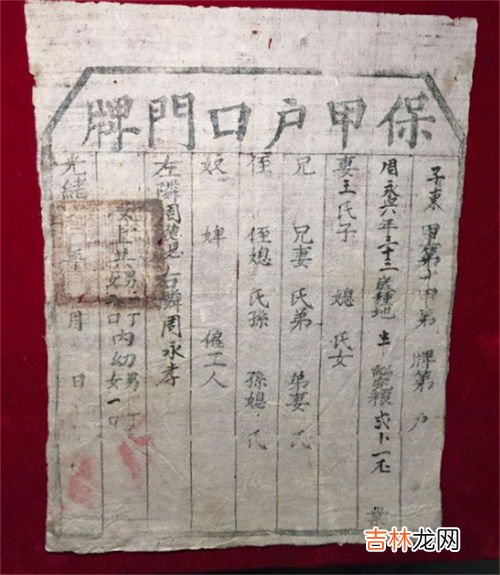 保甲户口門牌
子東 甲第十甲第 牌第 户
周永 年三十三歲種地
妻王氏子 媳 氏女
兄 兄妻 氏弟 弟妻 氏
侄 侄媳 氏孫 孫媳 氏
奴 婢 僱工人
左隣周 右隣周永孝
以上共男 丁 女 口内幼男 丁 女一口
光緒 年 月 日
吉林龙网